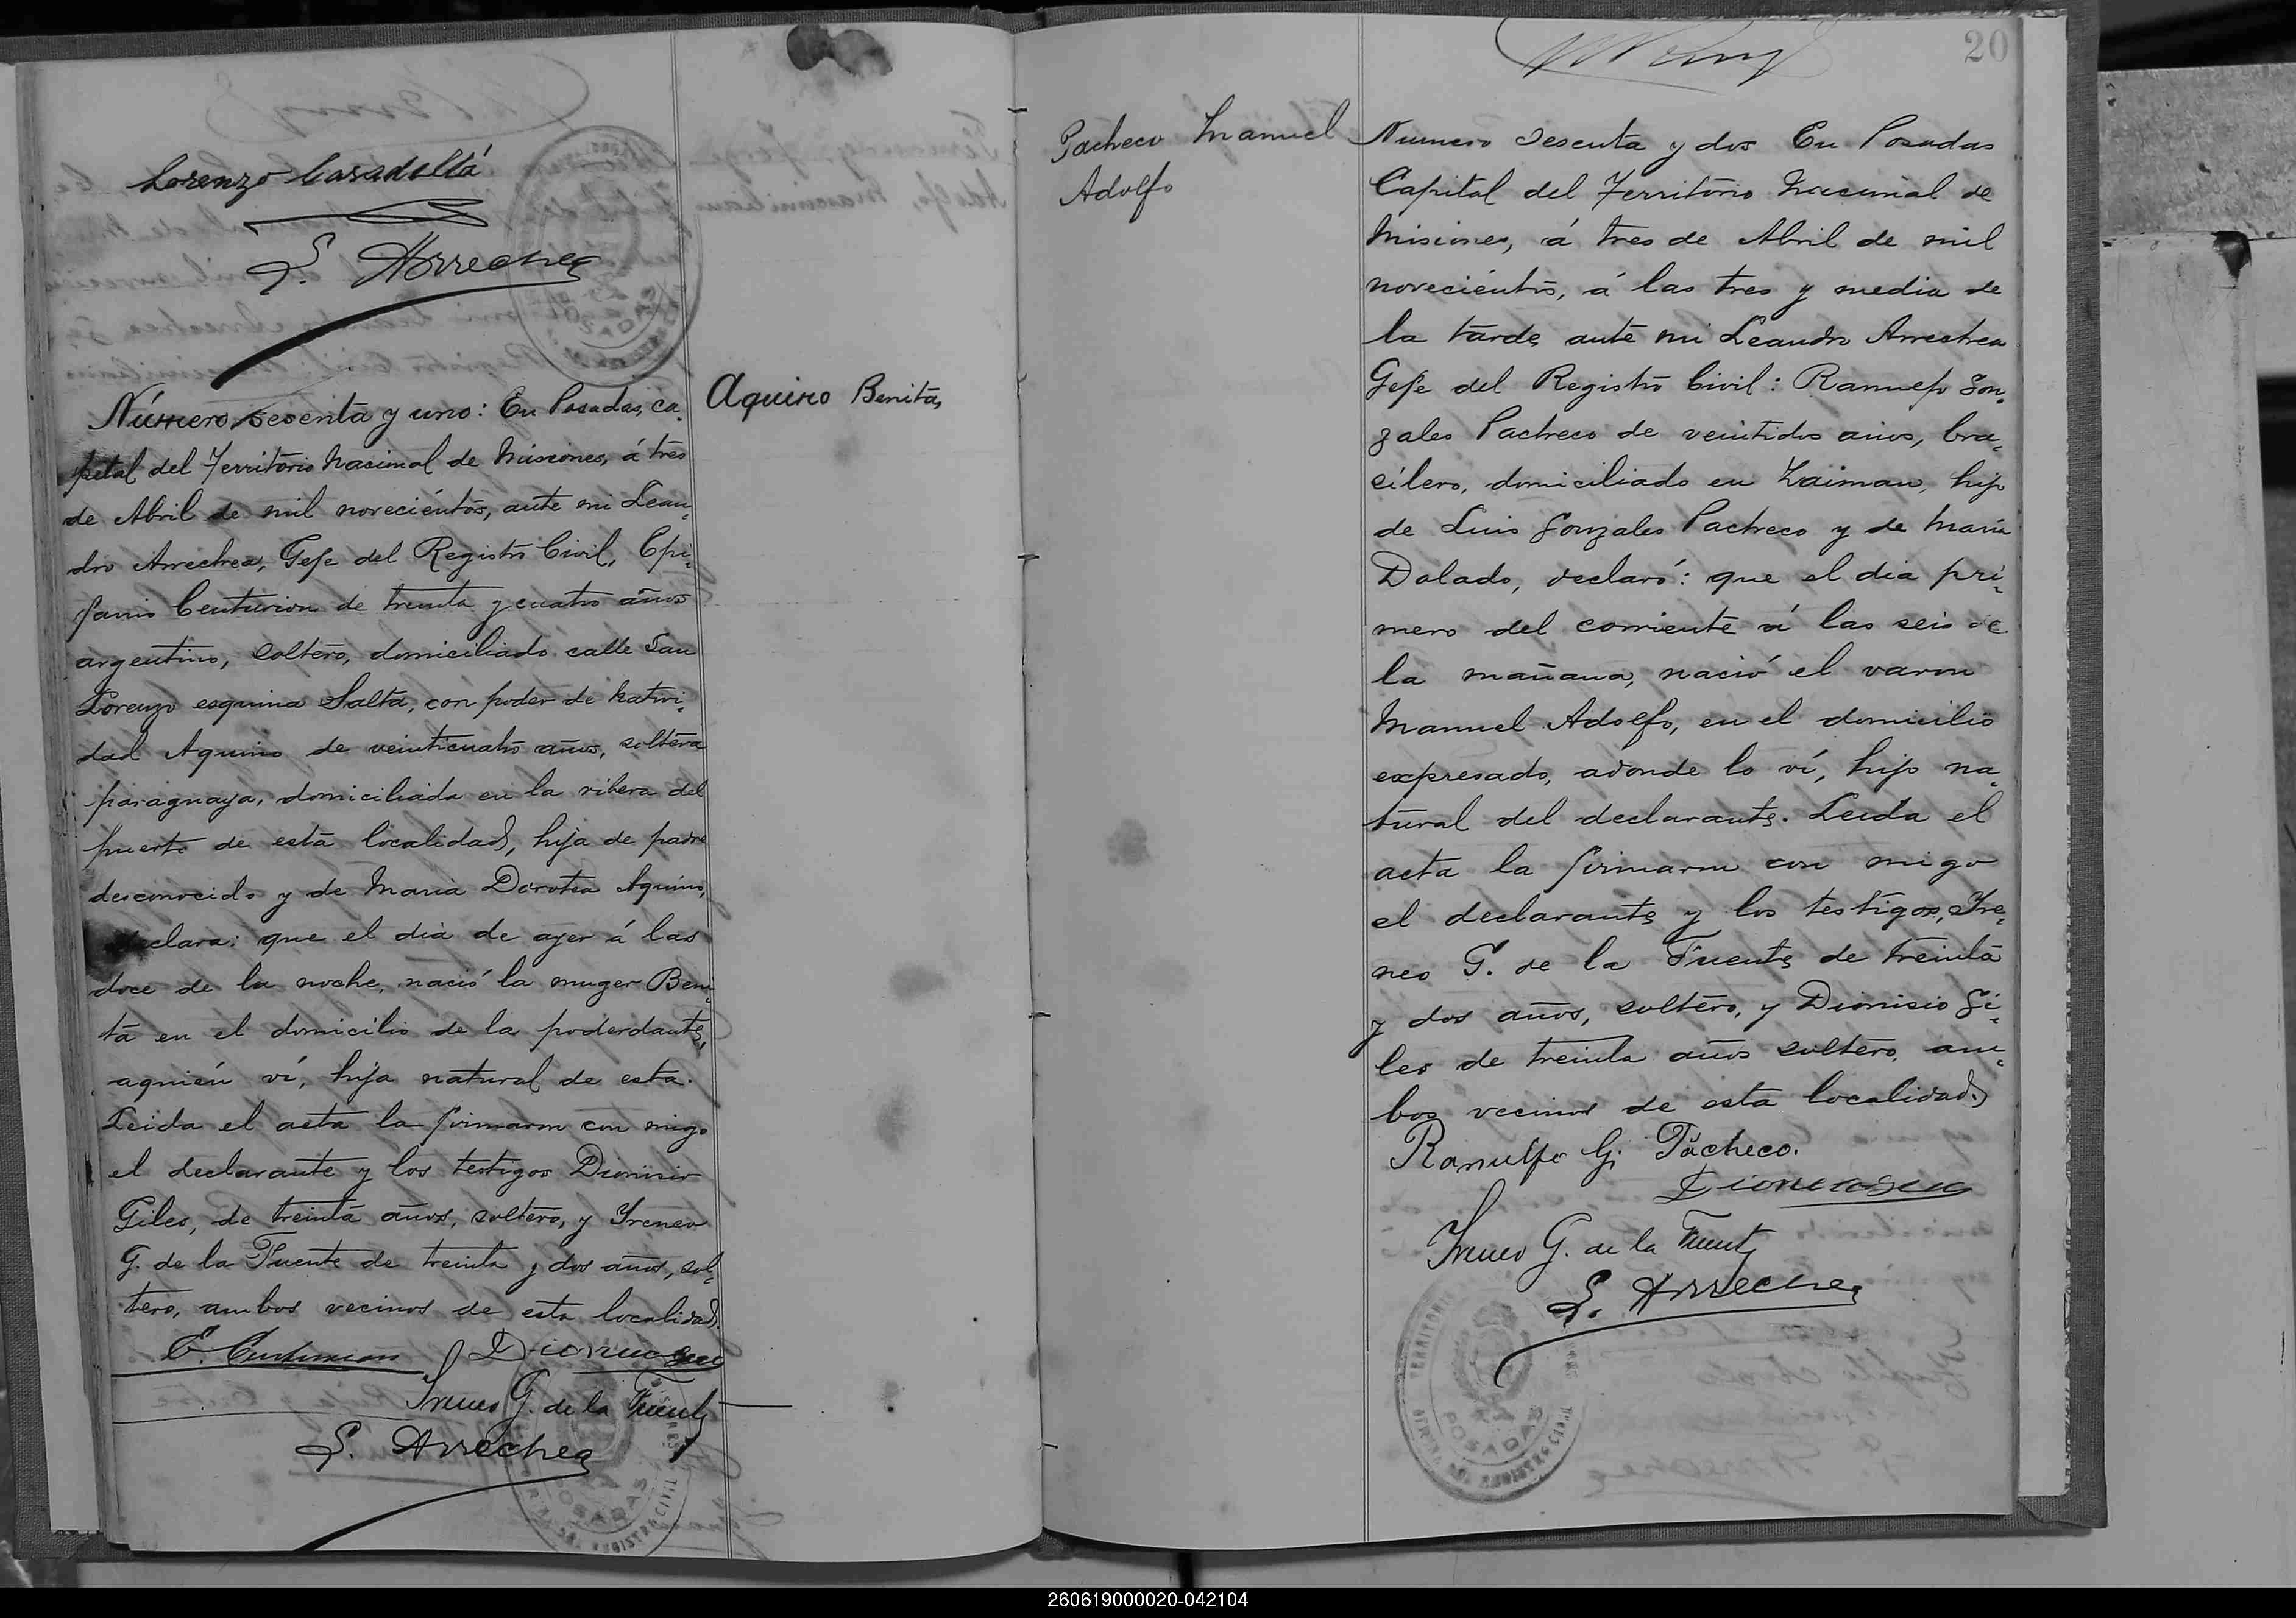 Lorenzo Casadellá
L. Arrechea
Aquino Benita,
Número sesenta y uno: En Posadas, ca-
pital del Territorio Nacional de Misiones, á tres
de Abril de mil novecientos, ante mi Lean-
dro Arrechea, Gefe del Registro Civil, Epi-
fanio Centurion de treinta y cuatro años
argentino, soltero, domiciliado calle San
Lorenzo esquina Salta, con poder de Nativi-
dad Aquino de veinticuatro años, soltera
paraguaya, domiciliada en la ribera del
puerto de esta localidad, hija de padre
desconocido y de Maria Dorotea Aquino,
declara: que el dia de ayer á las
doce de la noche, nació la muger Beni-
ta en el domicilio de la poderdante,
aquién ví, hija natural de esta.
Leida el acta la firmaron con migo
el declarante y los testigos Dionisio
Giles, de treinta años, soltero, y Ireneo
G. de la Fuente de treinta y dos años, sol-
tero, ambos vecinos de esta localidad.
E. Centurion
Ireneo G. de la Fuente
L. Arrechea
POSADAS
20
Pacheco Manuel
Adolfo
Numero sesenta y dos En Posadas
Capital del Territorio Nacional de
Misiones, á tres de Abril de mil
novecientos, á las tres y media de
la tarde ante mi Leandro Arrechea
Gefe del Registro Civil: Ranulfo Gon-
zales Pacheco de veintidos años, bra-
silero, domiciliado en Zaiman, hijo
de Luis Gonzales Pacheco y de Maria
Dolado, declaró: que el dia pri-
mero del corriente á las seis de
la mañana, nació el varon
Manuel Adolfo, en el domicilio
expresado, adonde lo ví, hijo na-
tural del declarante. Leida el
acta la firmaron con migo
el declarante y los testigos, Ire-
neo G. de la Fuente de treinta
y dos años, soltero, y Dionisio Gi-
les de treinta años soltero, am-
bos vecinos de esta localidad.
Ranulfo G. Pacheco.
Ireneo G. de la Fuente
L. Arrechea
TERRITORIO
POSADAS
OFICINA DEL REGISTRO CIVIL
260619000020-042104